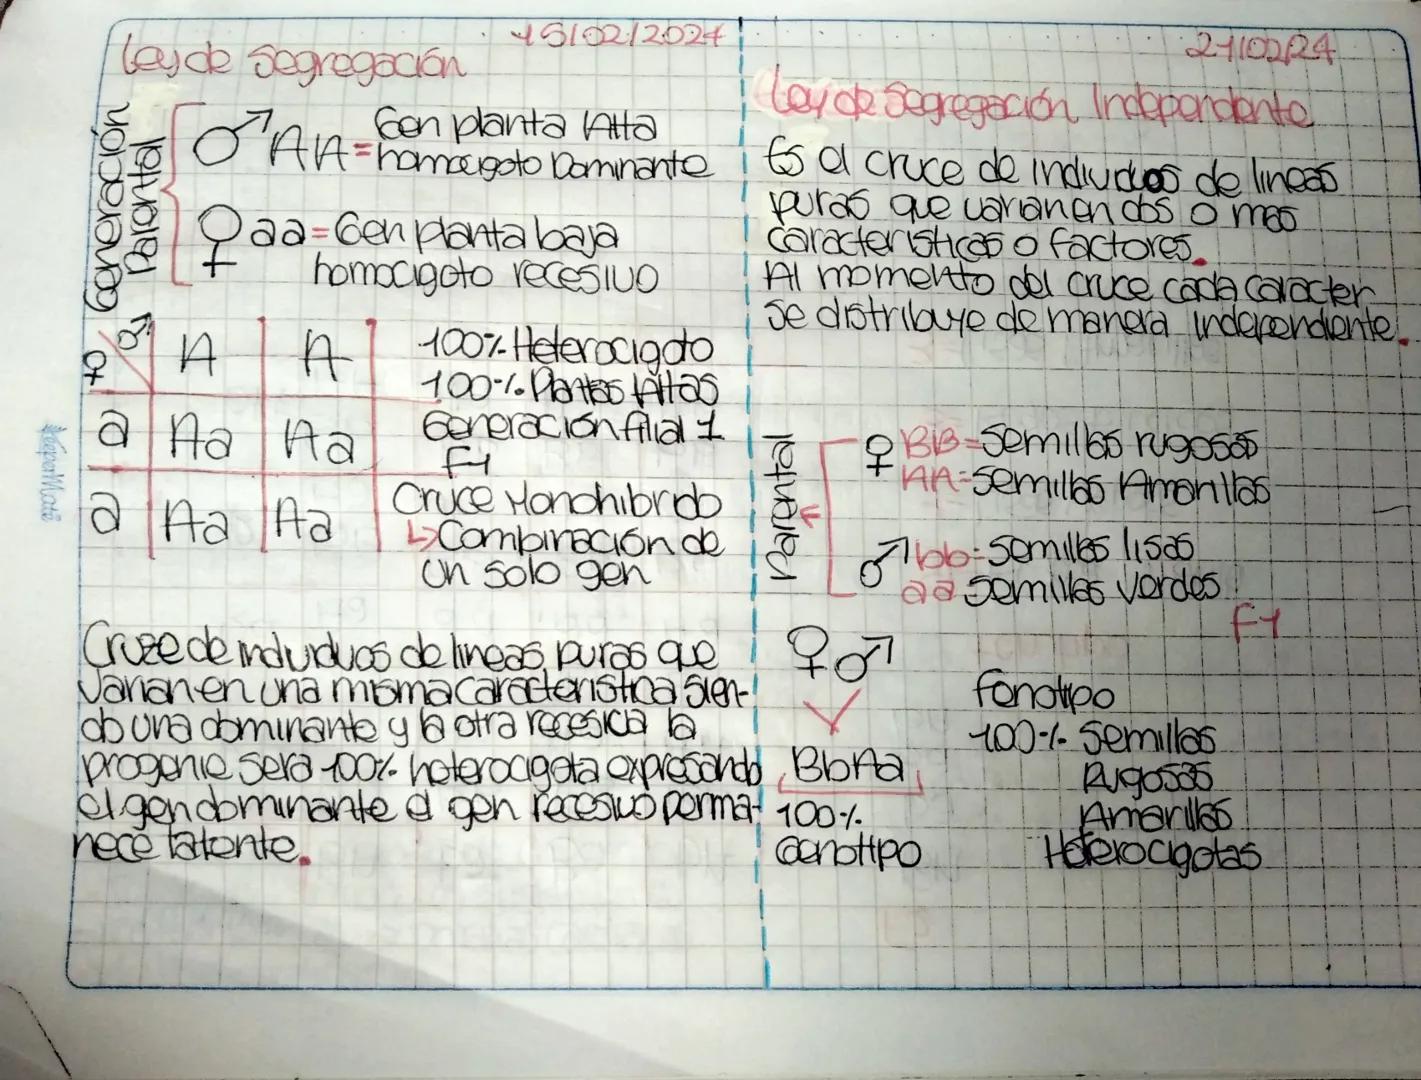 15/02/2024
Ley de Segregación
Generación
Parental
♂ AA = Gen planta Alta
homocigoto Dominante
♀ aa = Gen planta baja
homocigoto recesivo
♀ ♂ A A
a Aa Aa
a Aa Aa
100% Heterocigoto
100% Plantas Altas
Generación filial 1
F1
Cruce Monohibrido
↳ Combinación de
un solo gen
Cruze de individuos de lineas puras que
varian en una misma caracteristica sien-
do una dominante y la otra recesica la
progenie sera 100% heterocigota expresando
el gen dominante el gen recesivo perma-
nece latente.
PaperMate
21/02/24
Ley de Segregación Independente
Es el cruce de individuos de lineas
puras que varian en dos o mas
caracteristicas o factores.
Al momento del cruce cada caracter
se distribuye de manera independiente.
Parental
♀ BB = Semillas rugosas
AA = Semillas Amarillas
♂ bb = Semillas lisas
aa Semillas Verdes
F1
♀ ♂
BbAa
100%
Genotipo
Fenotipo
100% Semillas
Rugosas
Amarillas
Heterocigotas